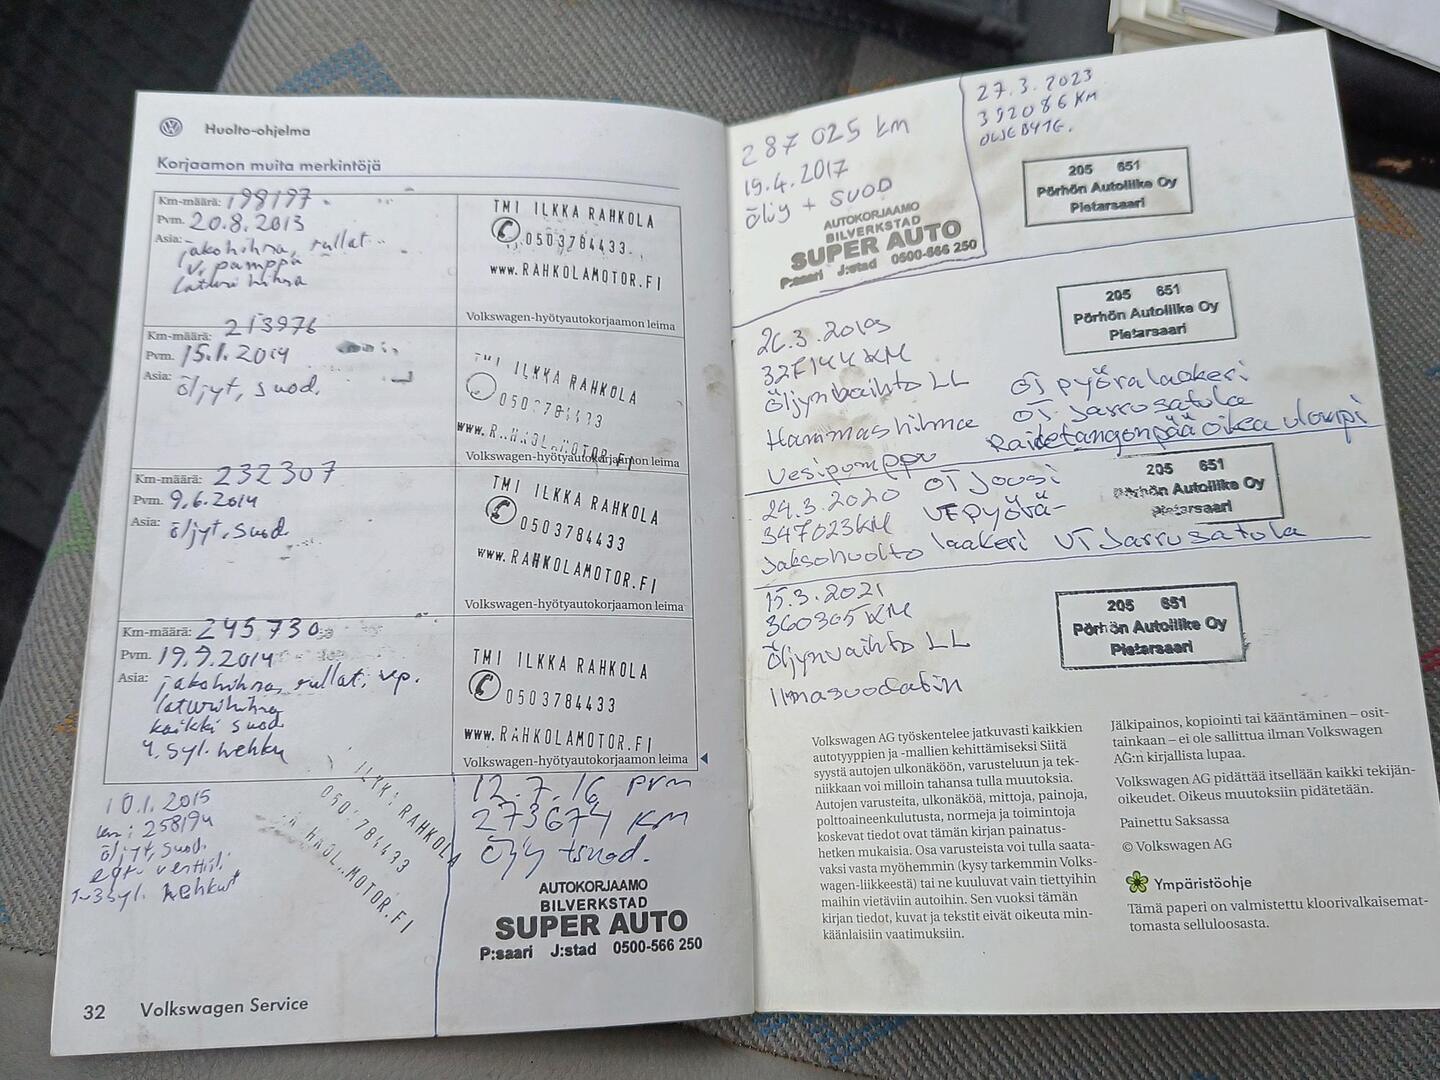 Huolto-ohjelma
Korjaamon muita merkintöjä
Km-määrä: 198197
Pvm. 20.8.2013
Asia: jakohihna, rullat
v. pamppa
laturihihna
TMI ILKKA RAHKOLA
0503784433
www.RAHKOLAMOTOR.FI
Volkswagen-hyötyautokorjaamon leima
Km-määrä: 213976
Pvm. 15.1.2014
Asia: öljyt, suod.
TMI ILKKA RAHKOLA
0503784433
www.RAHKOLAMOTOR.FI
Volkswagen-hyötyautokorjaamon leima
Km-määrä: 232307
Pvm. 9.6.2014
Asia: öljyt, suod.
TMI ILKKA RAHKOLA
0503784433
www.RAHKOLAMOTOR.FI
Volkswagen-hyötyautokorjaamon leima
Km-määrä: 245730
Pvm. 19.9.2014
Asia: jakohihna, rullat, vp.
laturihihna
kaikki suod.
4. syl. hehku
TMI ILKKA RAHKOLA
0503784433
www.RAHKOLAMOTOR.FI
Volkswagen-hyötyautokorjaamon leima
10.1.2015
km: 258194
öljyt, suod.
egr venttiil.
1-3 syl. hehkut
ILKKA RAHKOLA
0503784433
RAHKOLAMOTOR.FI
12.7.16 pvm
273674 KM
öljy + suod.
AUTOKORJAAMO
BILVERKSTAD
SUPER AUTO
P:saari J:stad 0500-566 250
32 Volkswagen Service
287 025 km
19.4.2017
öljy + SUOD
AUTOKORJAAMO
BILVERKSTAD
SUPER AUTO
P:saari J:stad 0500-566 250
27.3.2023
392086 KM
OLJEBYTE.
205 651
Pörhön Autoliike Oy
Pietarsaari
327144 KM
öljynvaihto LL
Hammashihna
Vesipumppu
205 651
Pörhön Autoliike Oy
Pietarsaari
OT pyöralaakeri
OT Jarrusatula
Raidetangonpää oikea ulompi
24.3.2020 OT Jousi
347023KM VE Pyörä-
Jaksohuolto laakeri VT Jarrusatula
205 651
Pörhön Autoliike Oy
Pietarsaari
15.3.2021
360365 KM
Öljynvaihto LL
Ilmasuodatin
205 651
Pörhön Autoliike Oy
Pietarsaari
Volkswagen AG työskentelee jatkuvasti kaikkien
autotyyppien ja -mallien kehittämiseksi Siitä
syystä autojen ulkonäköön, varusteluun ja tek-
niikkaan voi milloin tahansa tulla muutoksia.
Autojen varusteita, ulkonäköä, mittoja, painoja,
polttoaineenkulutusta, normeja ja toimintoja
koskevat tiedot ovat tämän kirjan painatus-
hetken mukaisia. Osa varusteista voi tulla saata-
vaksi vasta myöhemmin (kysy tarkemmin Volks-
wagen-liikkeestä) tai ne kuuluvat vain tiettyihin
maihin vietäviin autoihin. Sen vuoksi tämän
kirjan tiedot, kuvat ja tekstit eivät oikeuta min-
käänlaisiin vaatimuksiin.
Jälkipainos, kopiointi tai kääntäminen – osit-
tainkaan – ei ole sallittua ilman Volkswagen
AG:n kirjallista lupaa.
Volkswagen AG pidättää itsellään kaikki tekijän-
oikeudet. Oikeus muutoksiin pidätetään.
Painettu Saksassa
© Volkswagen AG
Ympäristöohje
Tämä paperi on valmistettu kloorivalkaisemat-
tomasta selluloosasta.